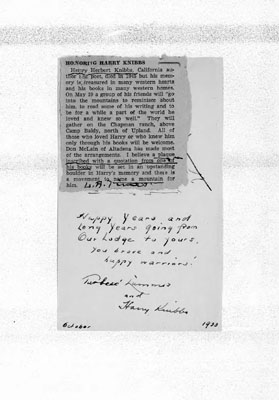 HONORING HARRY KNIBBS
Harry Herbert Knibbs, California au-
thor and poet, died in 1945 but his mem-
ory is treasured in many western hearts
and his books in many western homes.
On May 20 a group of his friends will "go
into the mountains to reminisce about
him, to read some of his writing and to
be for a while a part of the world he
loved and knew so well." They will
gather on the Chapman ranch, above
Camp Baldy, north of Upland. All of
those who loved Harry or who knew him
only through his books will be welcome.
Don McLain of Altadena has made most
of the arrangements. I believe a plaque
inscribed with a quotation from one of
his books will be set in an outstanding
boulder in Harry's memory and there is
a movement to name a mountain for
him. L.A. Times
Happy Years and
Long Years going from
Our Lodge to yours,
You brave and
happy warriors!
and
Harry Knibbs
October 1933